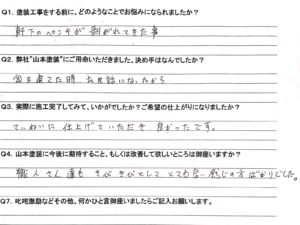 Q1. 塗装工事をする前に、どのようなことでお悩みになられましたか?
軒下のペンキが剥がれてきた事
Q2. 弊社"山本塗装"にご用命いただきました、決め手はなんでしたか?
家を建てた時、お世話になったから
Q3. 実際に施工完了してみて、いかがでしたか?ご希望の仕上がりになりましたか?
ていねいに仕上げていただき良かったです。
Q4. 山本塗装に今後に期待すること、もしくは改善して欲しいところは御座いますか?
職人さん達もきびきびとしてとても良い感じの方ばかりでした。
Q7. 叱咤激励などその他、何かひと言御座いましたらご記入お願いします。